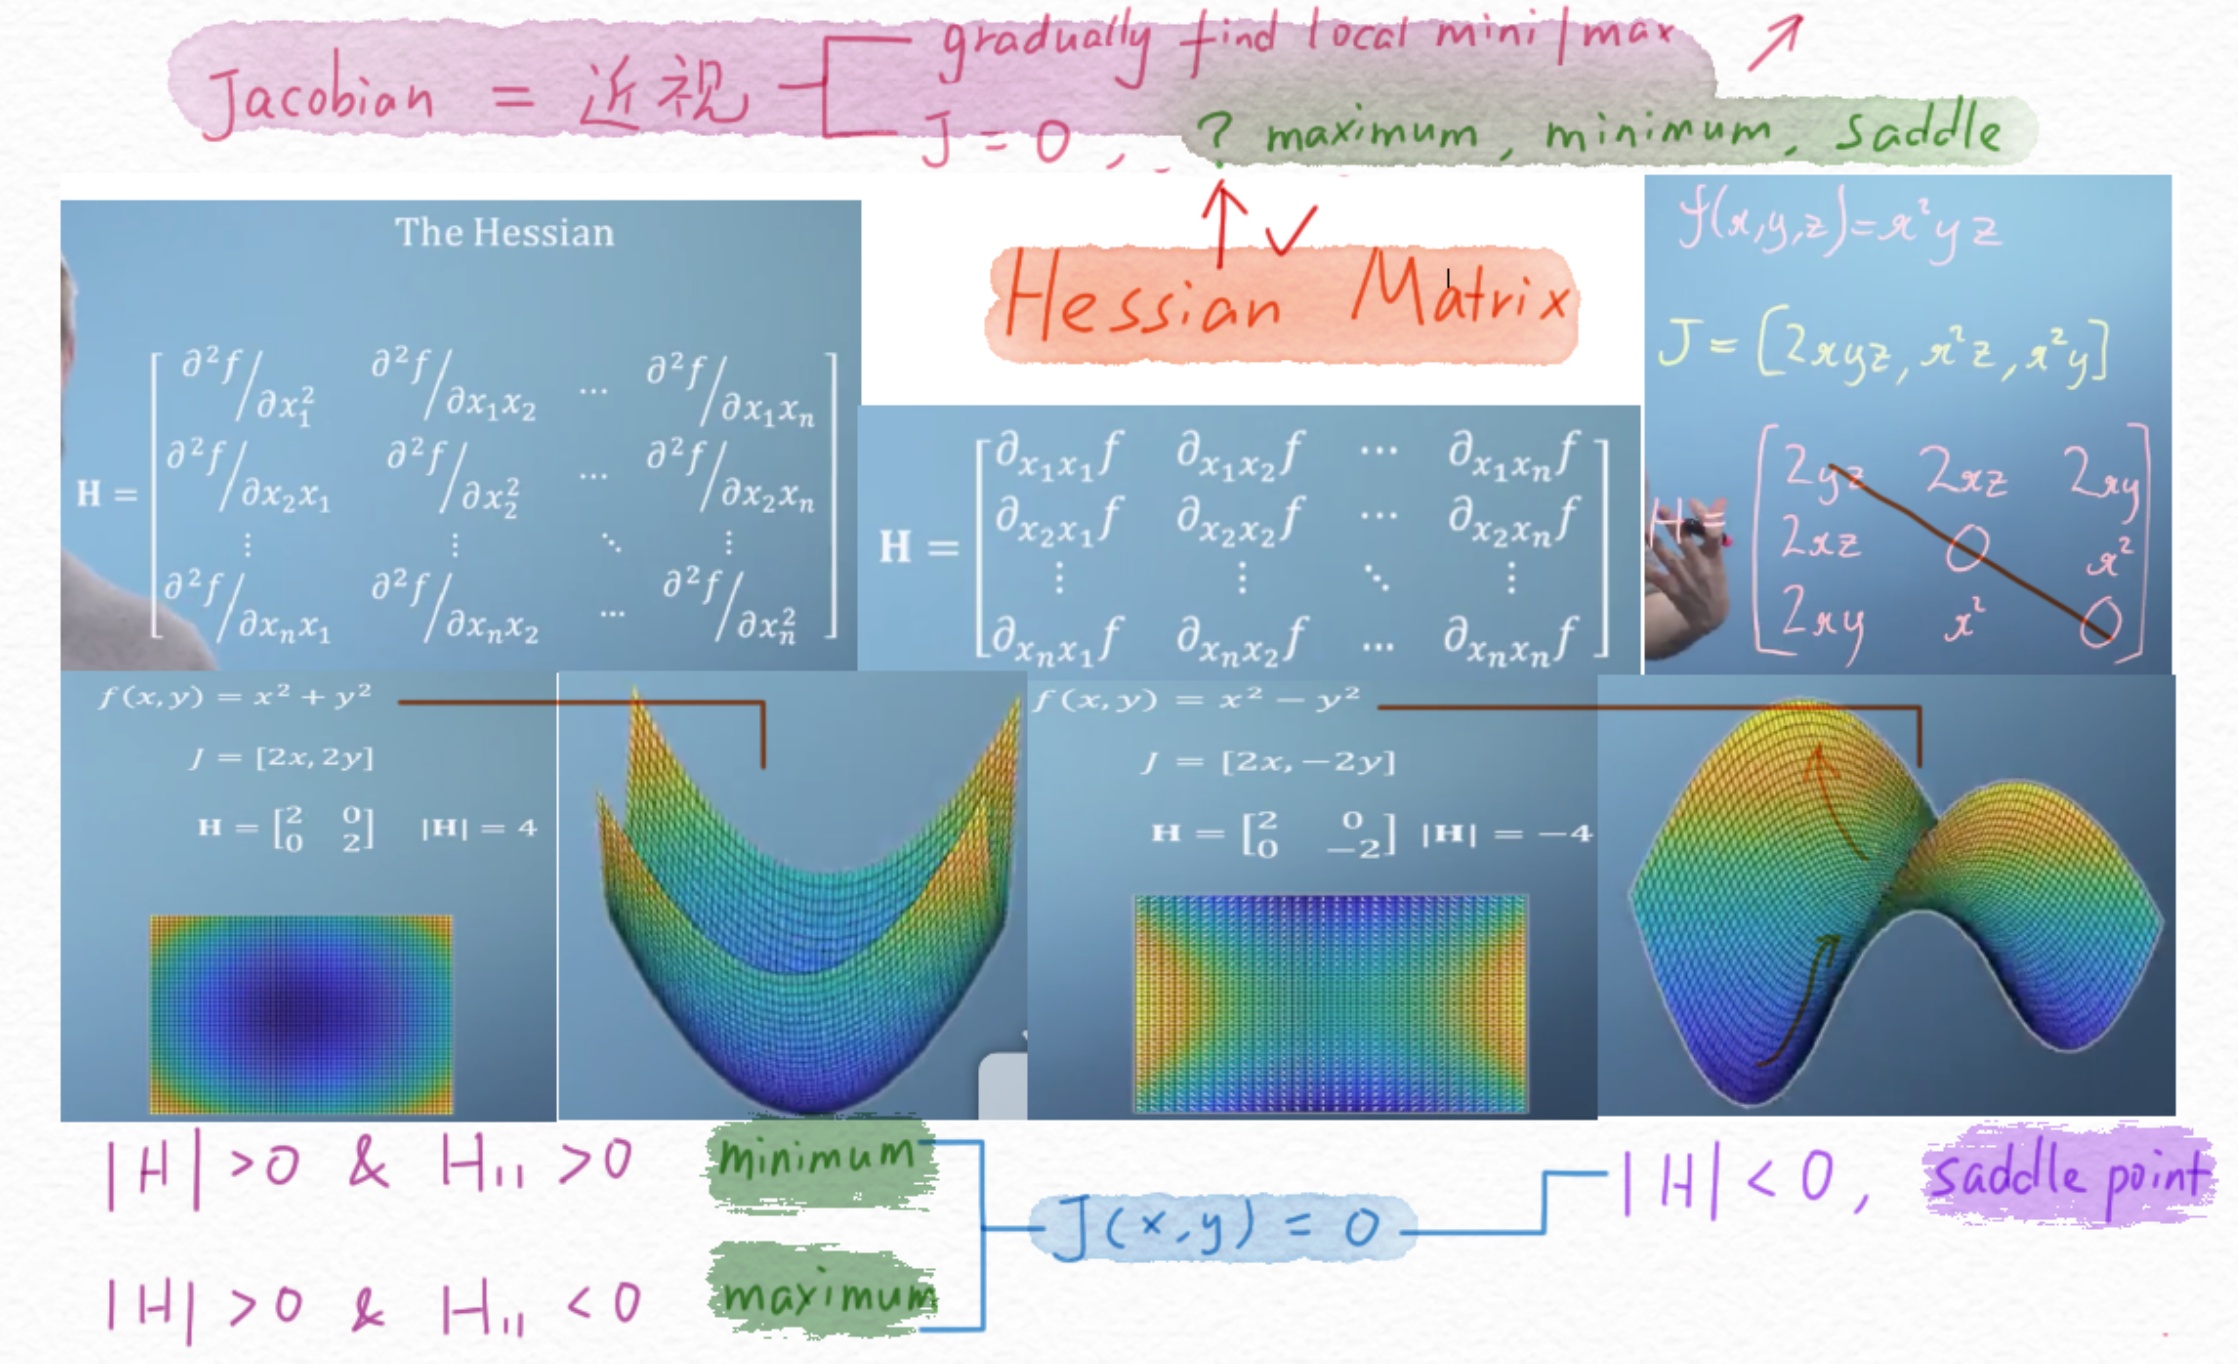 gradually find local mini/max
Jacobian = 近视
J = 0, ? maximum, minimum, saddle
The Hessian
H = [ ∂²f/∂x₁² ∂²f/∂x₁x₂ ... ∂²f/∂x₁xₙ
∂²f/∂x₂x₁ ∂²f/∂x₂² ... ∂²f/∂x₂xₙ
⋮ ⋮ ⋱ ⋮
∂²f/∂xₙx₁ ∂²f/∂xₙx₂ ... ∂²f/∂xₙ² ]
Hessian Matrix
H = [ ∂x₁x₁f ∂x₁x₂f ⋯ ∂x₁xₙf
∂x₂x₁f ∂x₂x₂f ⋯ ∂x₂xₙf
⋮ ⋮ ⋱ ⋮
∂xₙx₁f ∂xₙx₂f ... ∂xₙxₙf ]
f(x,y,z)=x²yz
J = [2xyz, x²z, x²y]
H = [ 2yz 2xz 2xy
2xz 0 x²
2xy x² 0 ]
f(x,y) = x² + y²
J = [2x, 2y]
H = [2 0
0 2] |H| = 4
f(x,y) = x² − y²
J = [2x, −2y]
H = [2 0
0 −2] |H| = −4
|H| >0 & H₁₁ >0 minimum
|H| >0 & H₁₁ <0 maximum
J(x,y) = 0
|H| < 0, saddle point